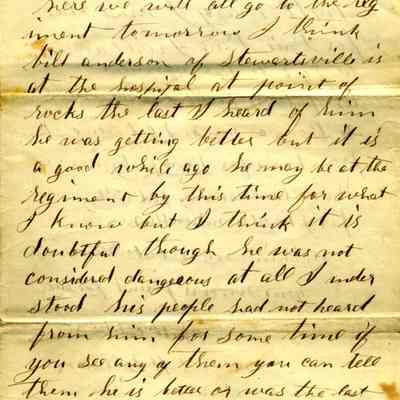 here we will all go to the reg
iment tomorrow I think
bill anderson of Stewartsville is
at the hospital at point of
rocks the last I heard of him
he was getting better but it is
a good while ago he may be at the
regiment by this time for what
I know but I think it is
doubtful though he was not
considered dangeous at all I under
stood his people had not heard
from him for some time if
you see any of them you can tell
them he is better or was the last